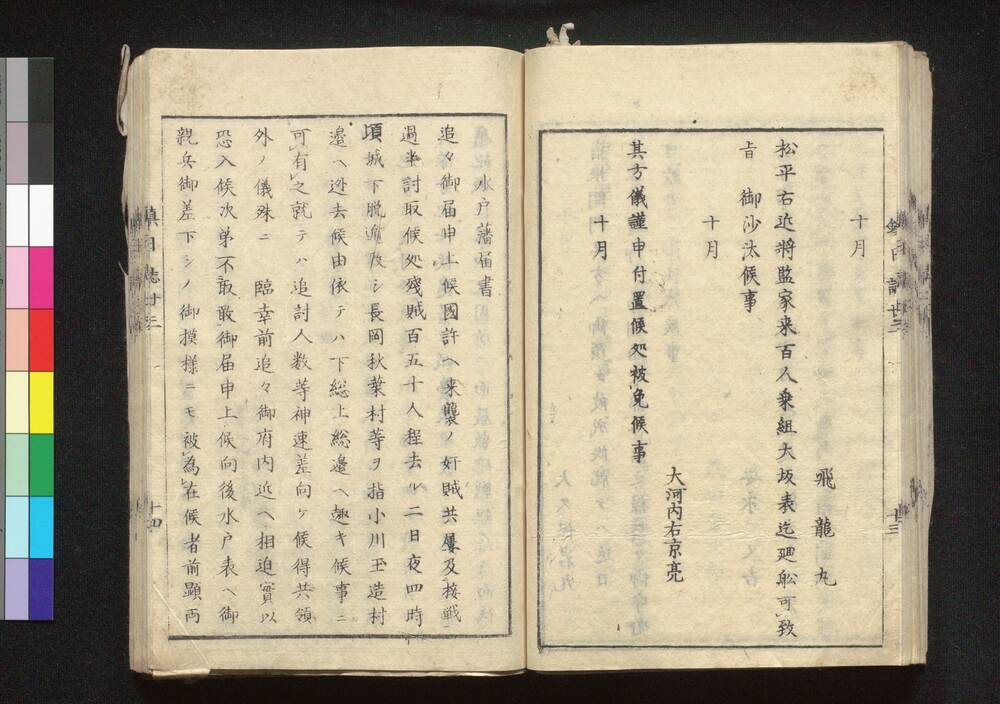 十月
飛龍丸
松平右近将監家来百人乗組大坂表迄廻舩可致
旨　御沙汰候事
十月
大河内右京亮
其方儀謹申付置候処被免候事
十月
水戸藩届書
追々御届申上候國許ヘ来襲ノ奸賊共屢及接戦
過半討取候処残賊百五十人程去ル二日夜四時
頃城下脱遁及シ長岡秋葉村等ヲ指小川玉造村
邉ヘ迯去候由依テハ下総上総邉ヘ趣キ候事ニ
可有之就テハ追討人数等神速差向ケ候得共領
外ノ儀殊ニ　臨幸前追々御府内近ヘ相迫實以
恐入候次弟不取敢御届申上候向後水戸表ヘ御
親兵御差下シノ御模様ニモ被為在候者前顕両
鎮日誌廿三
十三
鎮日誌廿三
十四